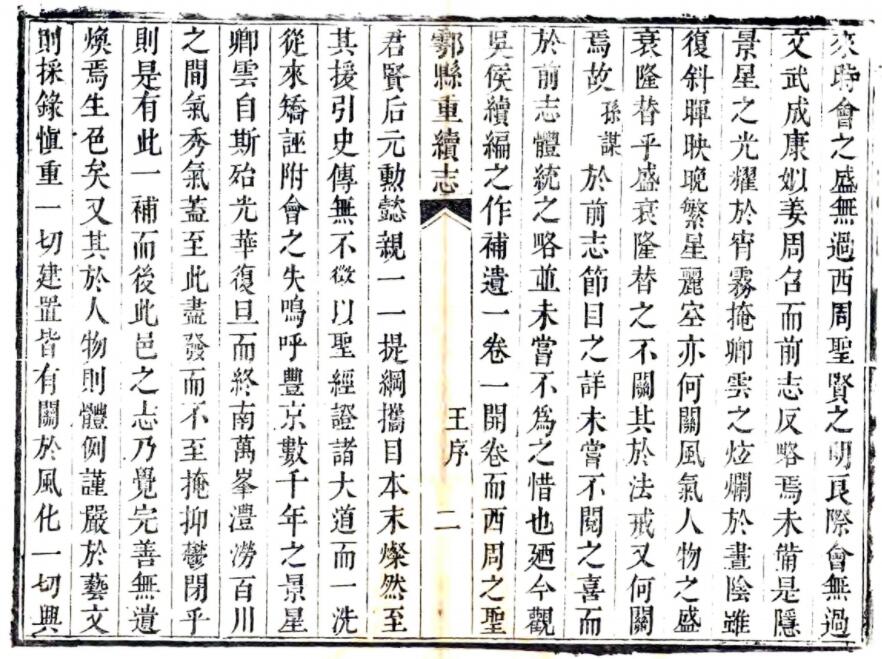 來時會之盛無過西周聖賢之明良際會無過
文武成康姒姜周召而前志反略焉未備是隱
景星之光耀於宵霧掩卿雲之炫爛於晝陰雖
復斜暉映晚繁星麗空亦何關風氣人物之盛
衰隆替乎盛衰隆替之不關其於法戒又何關
焉故孫謀於前志節目之詳未嘗不閱之喜而
於前志體統之略並未嘗不為之惜也廼今觀
吳侯續編之作補遺一卷一開卷而西周之聖
鄠縣重續志
王序
二
君賢后元勳懿親一一提綱攜目本末燦然至
其援引史傳無不徵以聖經證諸大道而一洗
從來矯誣附會之失嗚呼豐京數千年之景星
卿雲自斯始光華復旦而終南萬峯灃澇百川
之間氣秀氣蓋至此盡發而不至掩抑鬱閉乎
則是有此一補而後此邑之志乃覺完善無遺
煥焉生色矣又其於人物則體例謹嚴於藝文
則採錄慎重一切建置皆有關於風化一切興